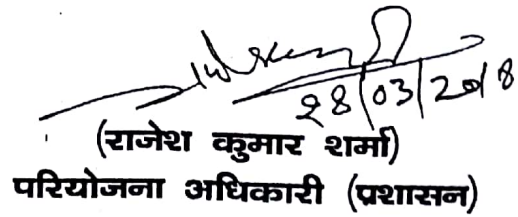 28/03/2018
(राजेश कुमार शर्मा)
परियोजना अधिकारी (प्रशासन)